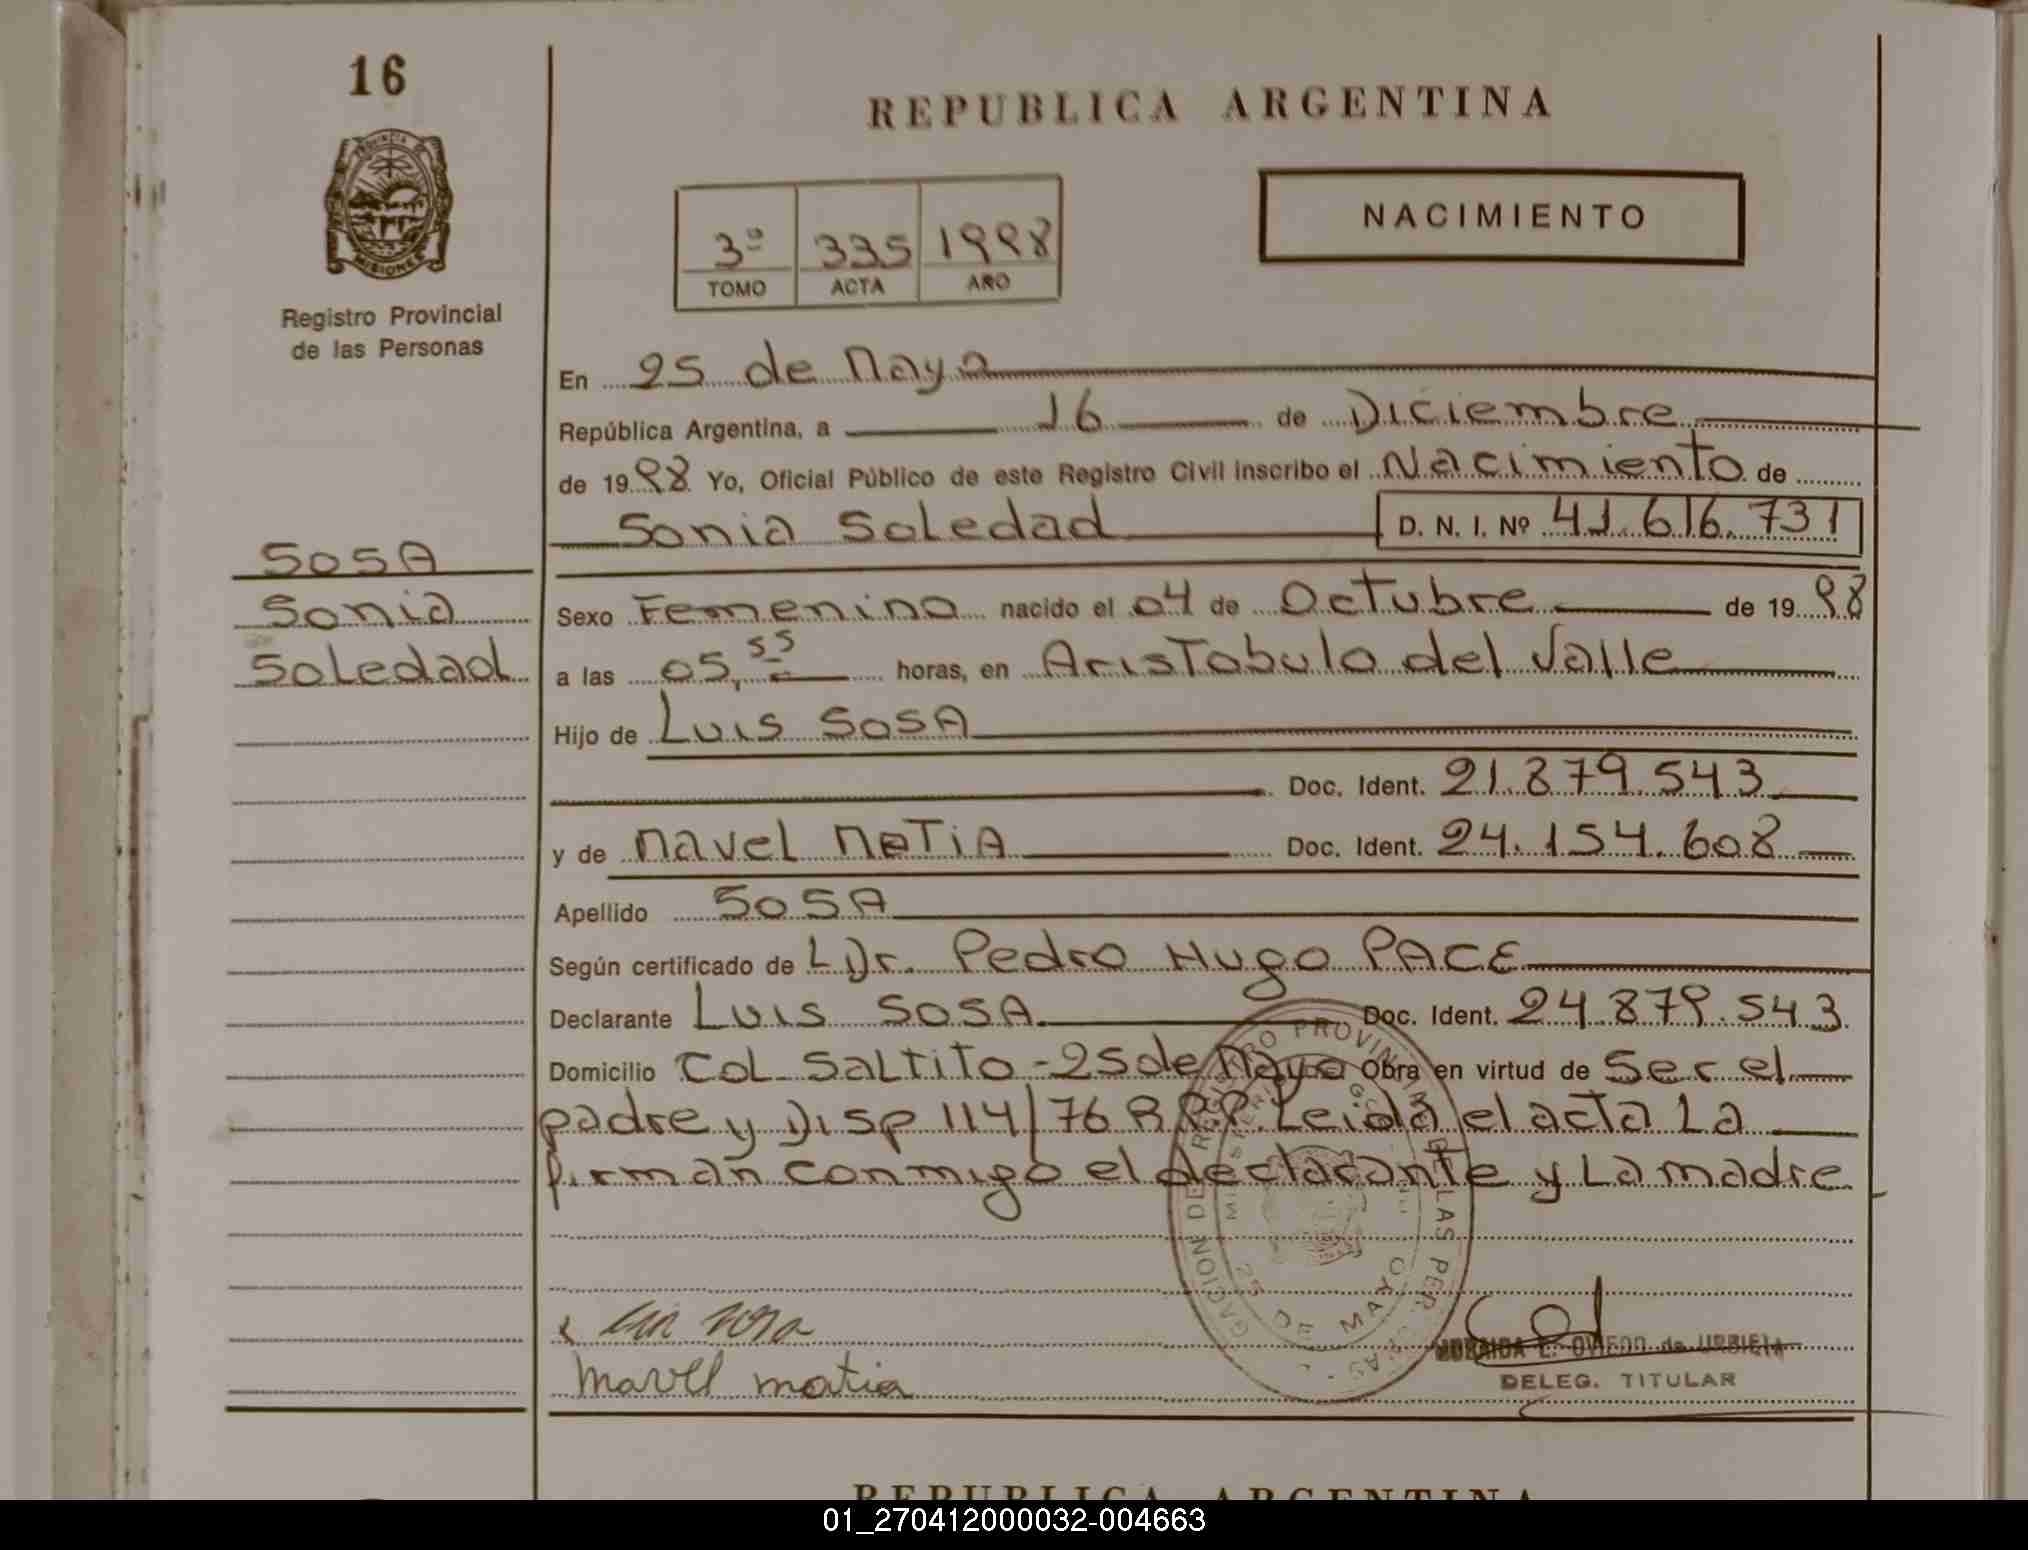 16
REPUBLICA ARGENTINA
NACIMIENTO
3º 335 1998
TOMO ACTA AÑO
PROVINCIA DE
MISIONES
Registro Provincial
de las Personas
En 25 de Mayo
República Argentina, a 16 de Diciembre
de 1998 Yo, Oficial Público de este Registro Civil inscribo el Nacimiento de
Sonia Soledad D. N. I. Nº 41.616.731
SOSA
Sonia
Soledad
Sexo Femenino nacido el 04 de Octubre de 1998
a las 05,55 horas, en Aristobulo del Valle
Hijo de Luis SOSA
Doc. Ident. 21.879.543
y de Mavel MATIA Doc. Ident. 24.154.608
Apellido SOSA
Según certificado de L Dr. Pedro Hugo PACE
Declarante Luis SOSA Doc. Ident. 24.879.543
Domicilio Col. Saltito - 25 de Mayo Obra en virtud de Ser el
padre y Disp 114/76 R.P.P. Leida el acta La
firman conmigo el declarante y La madre
25 DE MAYO
Luis Sosa
Mavel matia
E. OVIEDO de URBIETA
DELEG. TITULAR
REPUBLICA ARGENTINA
01_270412000032-004663